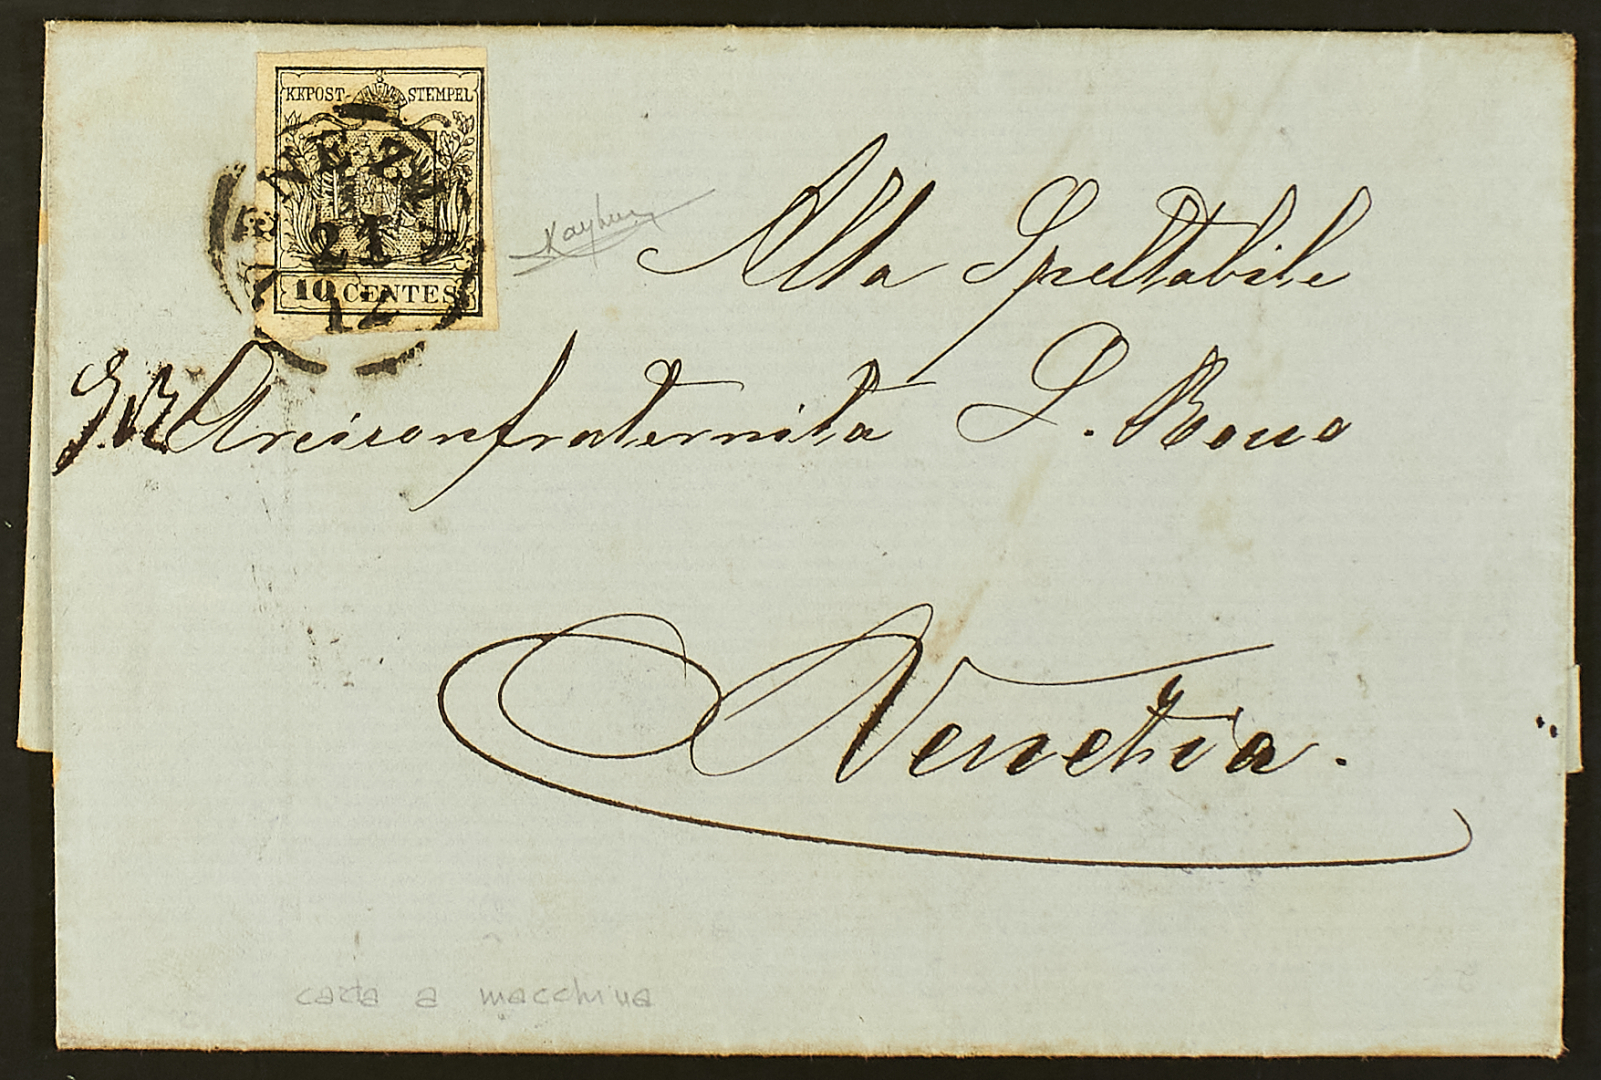 KKPOST-STEMPEL
VENEZIA
21
12
10 CENTES
Alla Spettabile
Arciconfraternita S. Rocco
Venezia.
carta a macchina